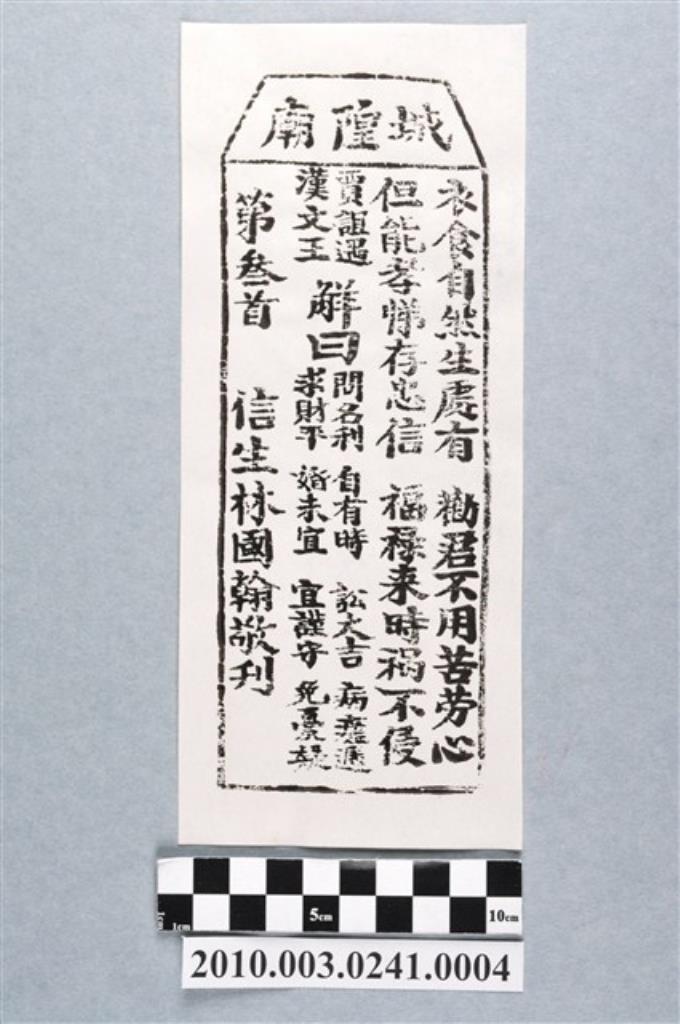 城隍廟
衣食自然生處有 勸君不用苦劳心
但能孝悌存忠信 福祿来時祸不侵
賈誼遇
漢文王
解曰
問名利 自有時 訟大吉 病遲
求財平 婚未宜 宜謹守 免憂疑
第叄首 信生林國翰敬刋
1cm 5cm 10cm
2010.003.0241.0004